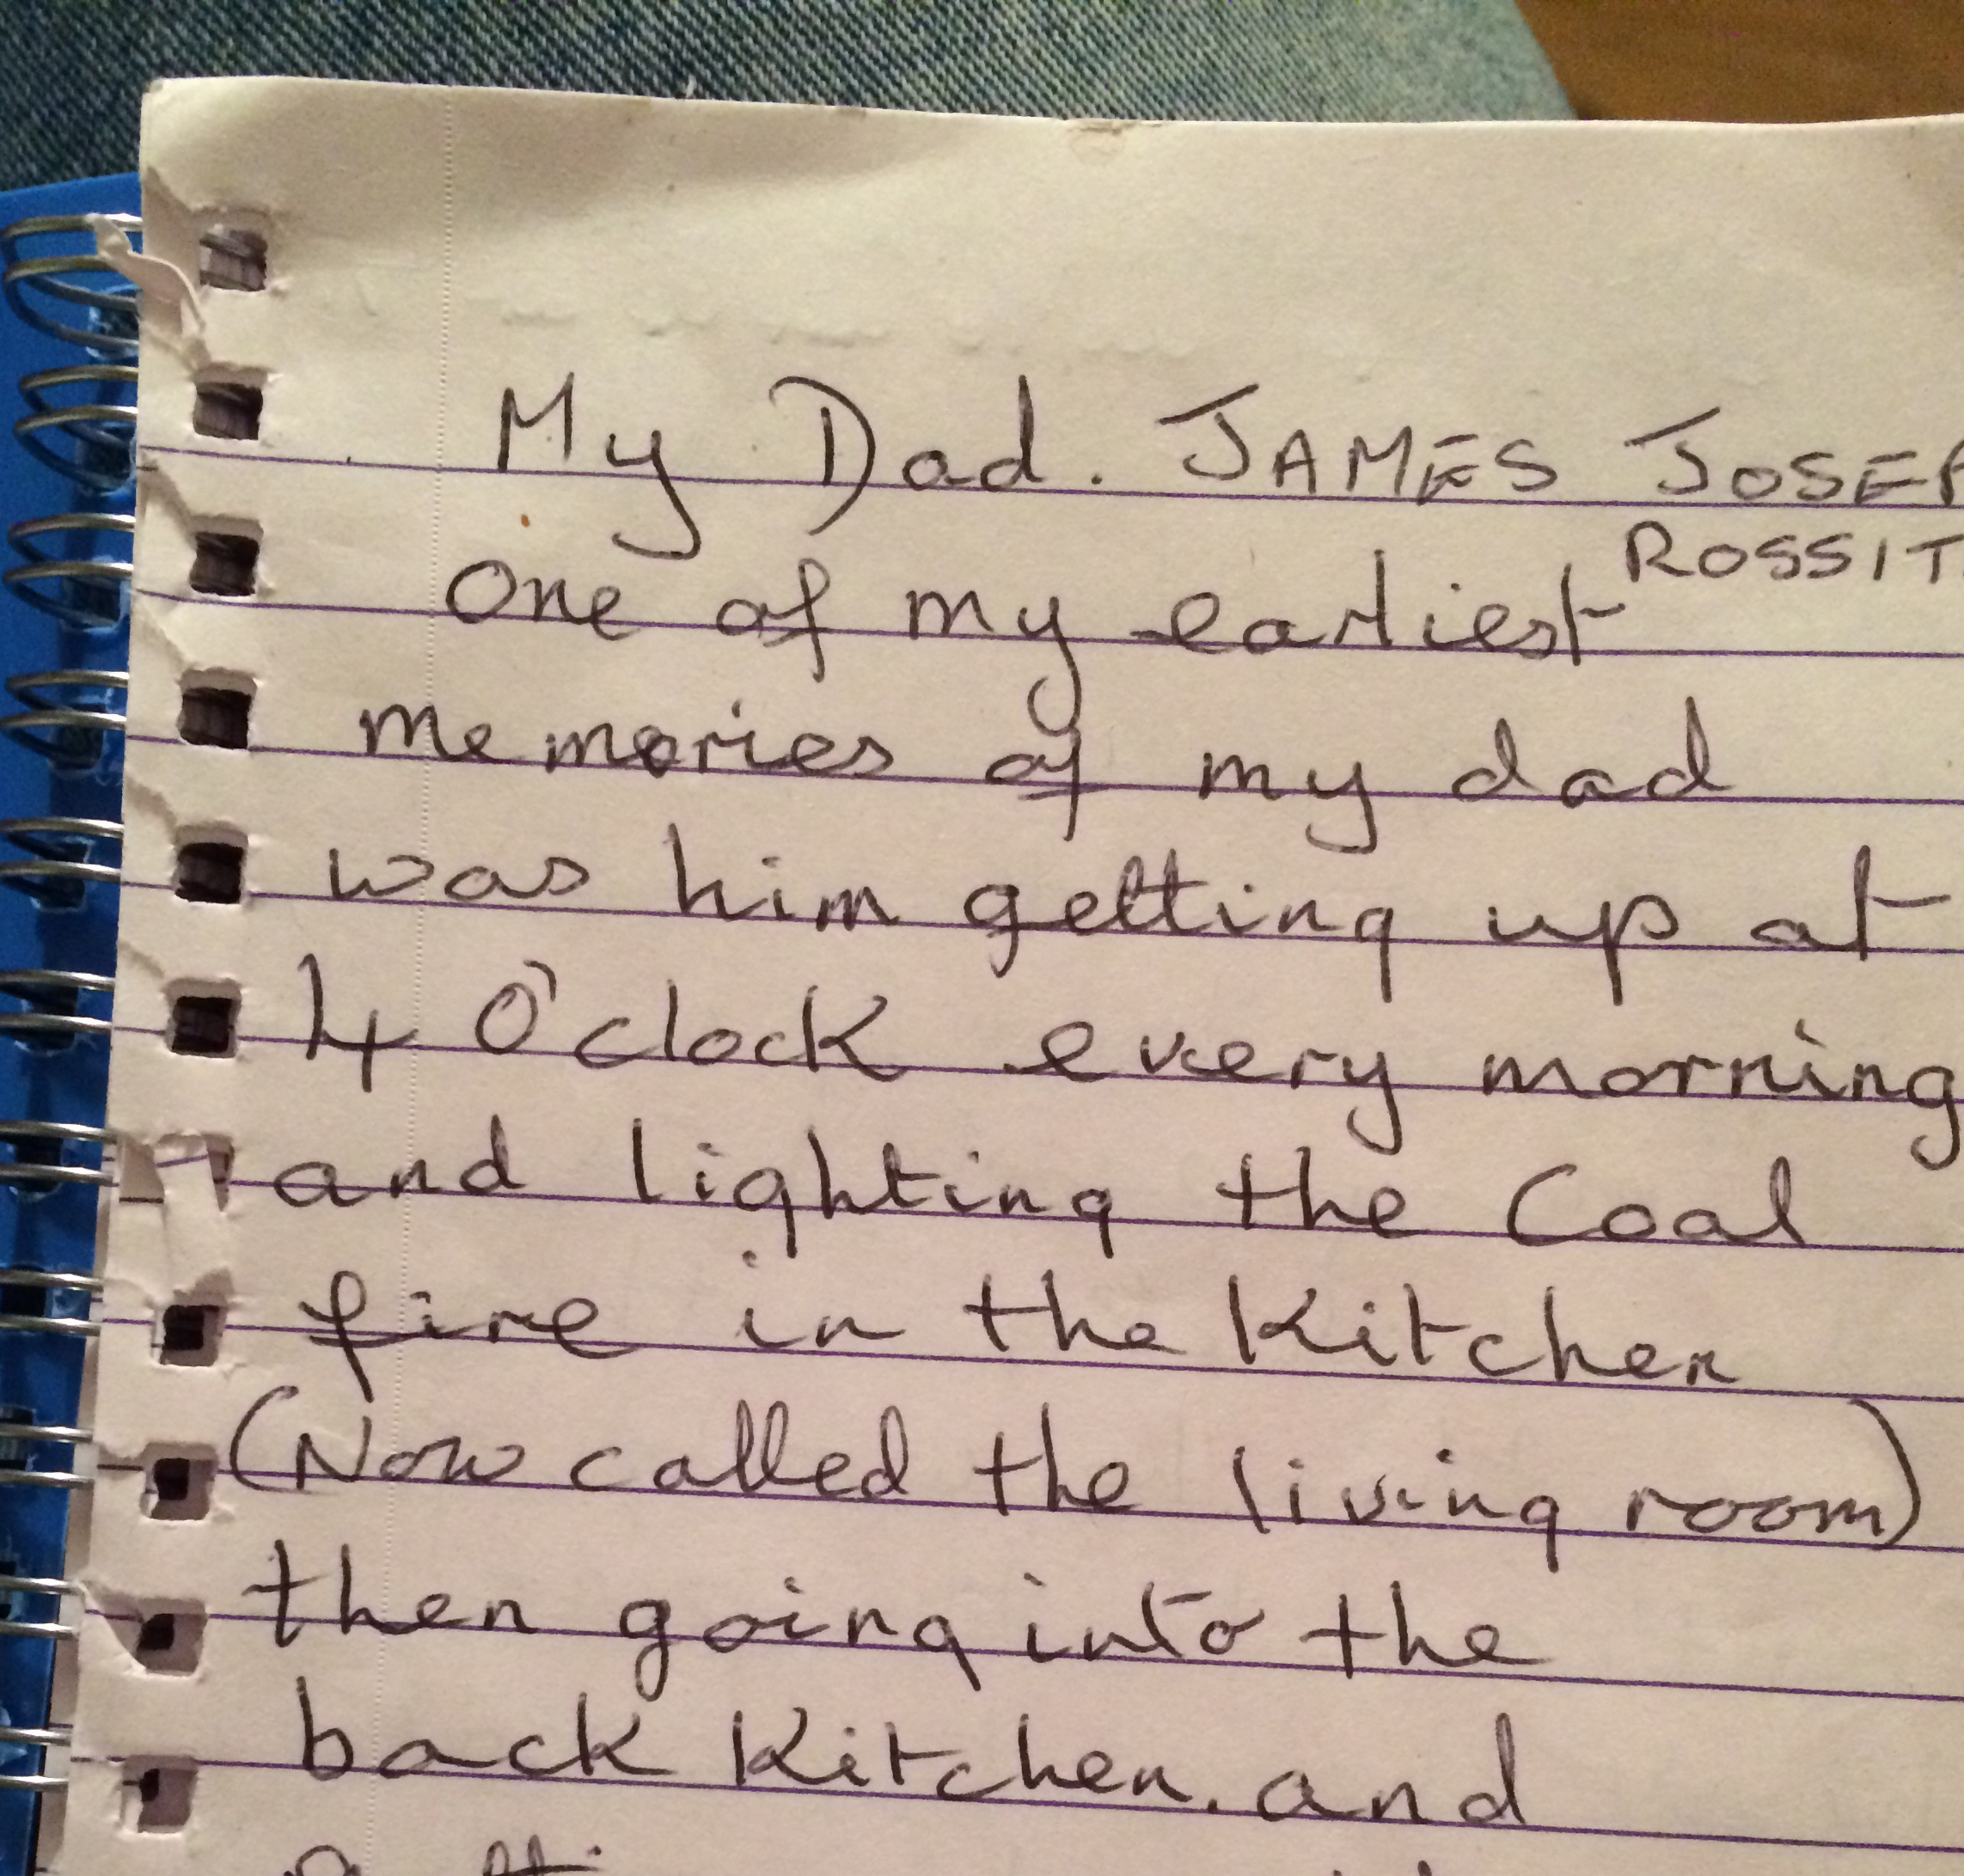 My Dad. JAMES JOSEP
ROSSIT
One of my earliest
memories of my dad
was him getting up at
4 O'clock every morning
and lighting the Coal
fire in the Kitchen
(Now called the living room)
then going into the
back Kitchen. and